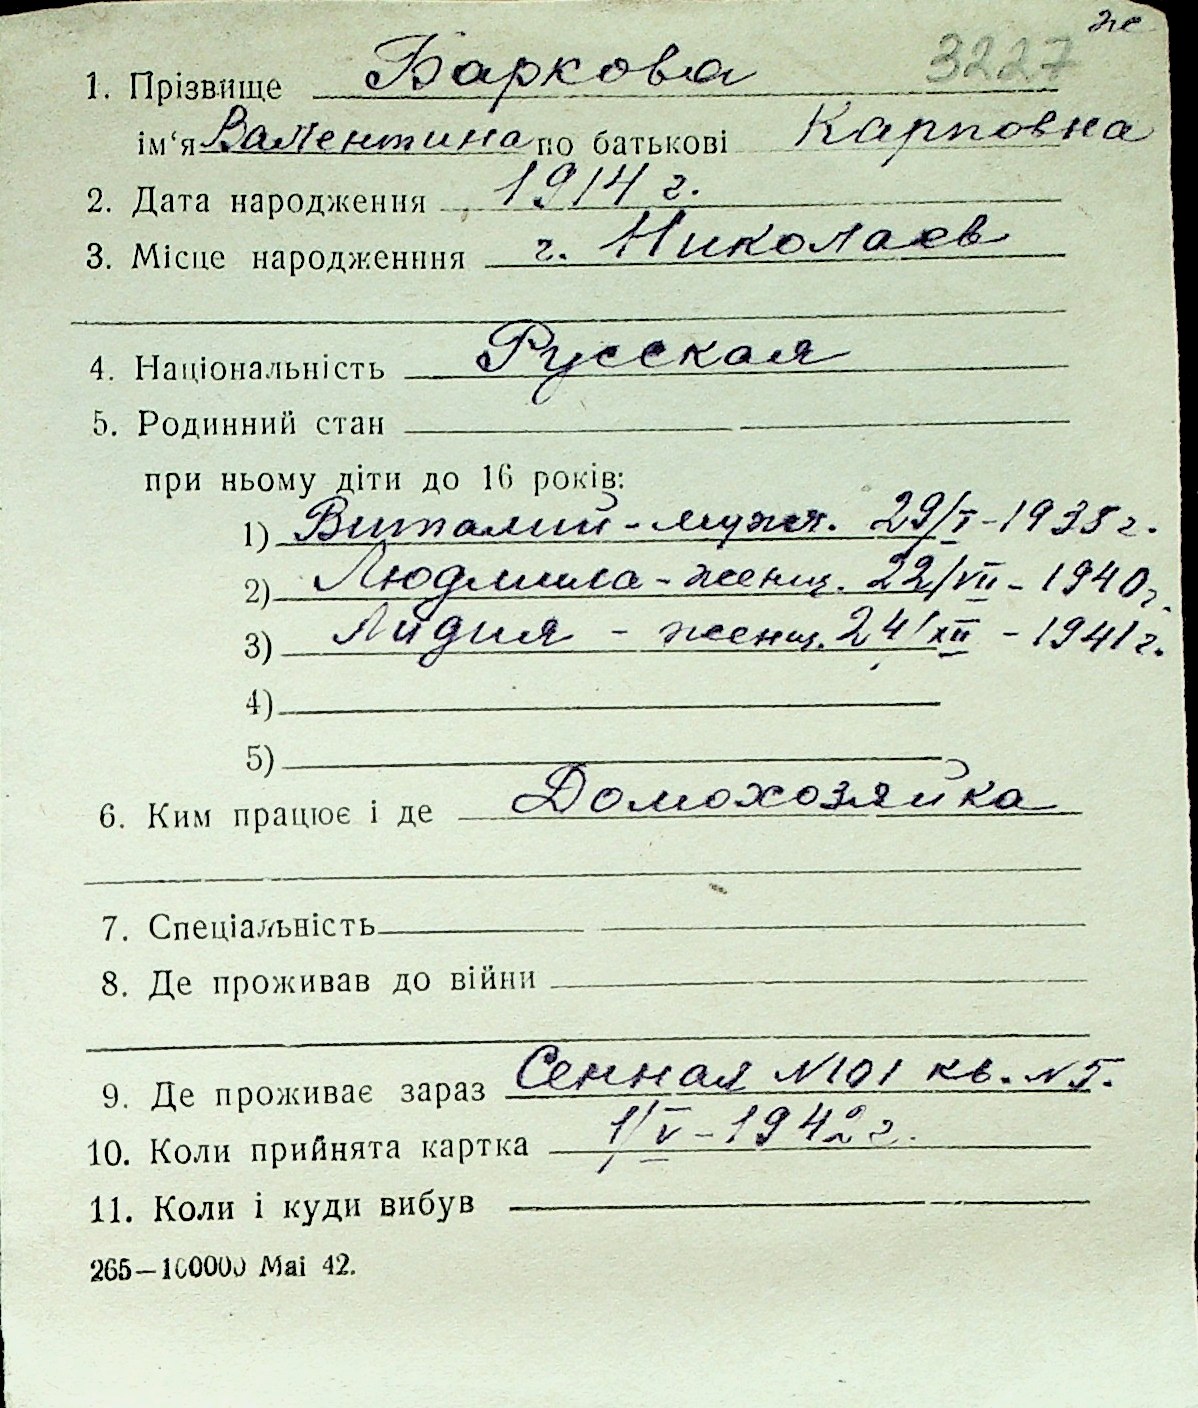 же
3227
1. Прізвище Баркова
ім‘я Валентина по батькові Карповна
2. Дата народження 1914 г.
3. Місце народженння г. Николаев
4. Національність Русская
5. Родинний стан
при ньому діти до 16 років:
1) Виталий - мужч. 29/I - 1938 г.
2) Людмила - женщ. 22/VII - 1940 г.
3) Лидия - женщ. 24/XII - 1941 г.
4)
5)
6. Ким працює і де Домохозяйка
7. Спеціальність
8. Де проживав до війни
9. Де проживає зараз Сенная N101 кв. N5.
10. Коли прийнята картка 1/V - 1942 г.
11. Коли і куди вибув
265—100000 Mai 42.